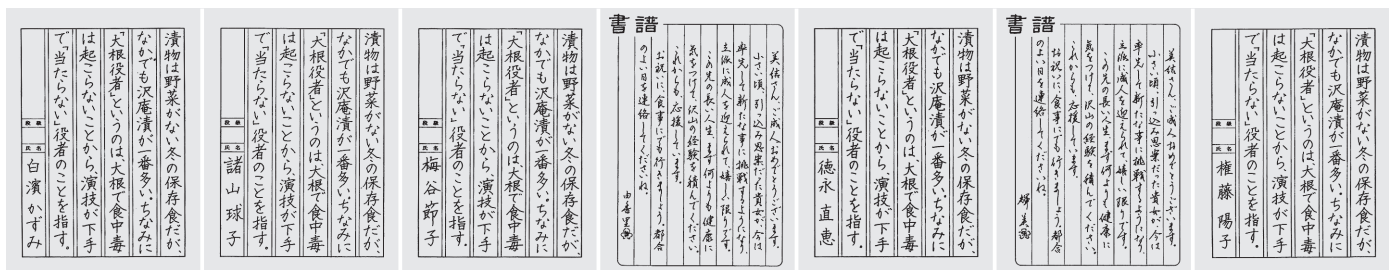 漬物は野菜がない冬の保存食だが、
なかでも沢庵漬が一番多い。ちなみに
「大根役者」というのは、大根で食中毒
は起こらないことから、演技が下手
で「当たらない」役者のことを指す。
段級
氏名 白濱かずみ
漬物は野菜がない冬の保存食だが、
なかでも沢庵漬が一番多い。ちなみに
「大根役者」というのは、大根で食中毒
は起こらないことから、演技が下手
で「当たらない」役者のことを指す。
段級
氏名 諸山球子
漬物は野菜がない冬の保存食だが、
なかでも沢庵漬が一番多い。ちなみに
「大根役者」というのは、大根で食中毒
は起こらないことから、演技が下手
で「当たらない」役者のことを指す。
段級
氏名 梅谷節子
書譜
美佐さん、ご成人おめでとうございます。
小さい頃、引っ込み思案だった貴女が、今は
率先して新たな事に挑戦するようになり、
立派に成人を迎えられて、嬉しい限りです。
この先の長い人生、まず何よりも健康に
気をつけて、沢山の経験を積んでください。
これからも応援しています。
お祝いに食事にでも行きましょう。都合
のよい日を連絡してくださいね。
漬物は野菜がない冬の保存食だが、
なかでも沢庵漬が一番多い。ちなみに
「大根役者」というのは、大根で食中毒
は起こらないことから、演技が下手
で「当たらない」役者のことを指す。
段級
氏名 徳永直恵
書譜
美佐さん、ご成人おめでとうございます。
小さい頃、引っ込み思案だった貴女が、今は
率先して新たな事に挑戦するようになり、
立派に成人を迎えられて、嬉しい限りです。
この先の長い人生、まず何よりも健康に
気をつけて、沢山の経験を積んでください。
これからも応援しています。
お祝いに食事にでも行きましょう。都合
のよい日を連絡してくださいね。
漬物は野菜がない冬の保存食だが、
なかでも沢庵漬が一番多い。ちなみに
「大根役者」というのは、大根で食中毒
は起こらないことから、演技が下手
で「当たらない」役者のことを指す。
段級
氏名 権藤陽子